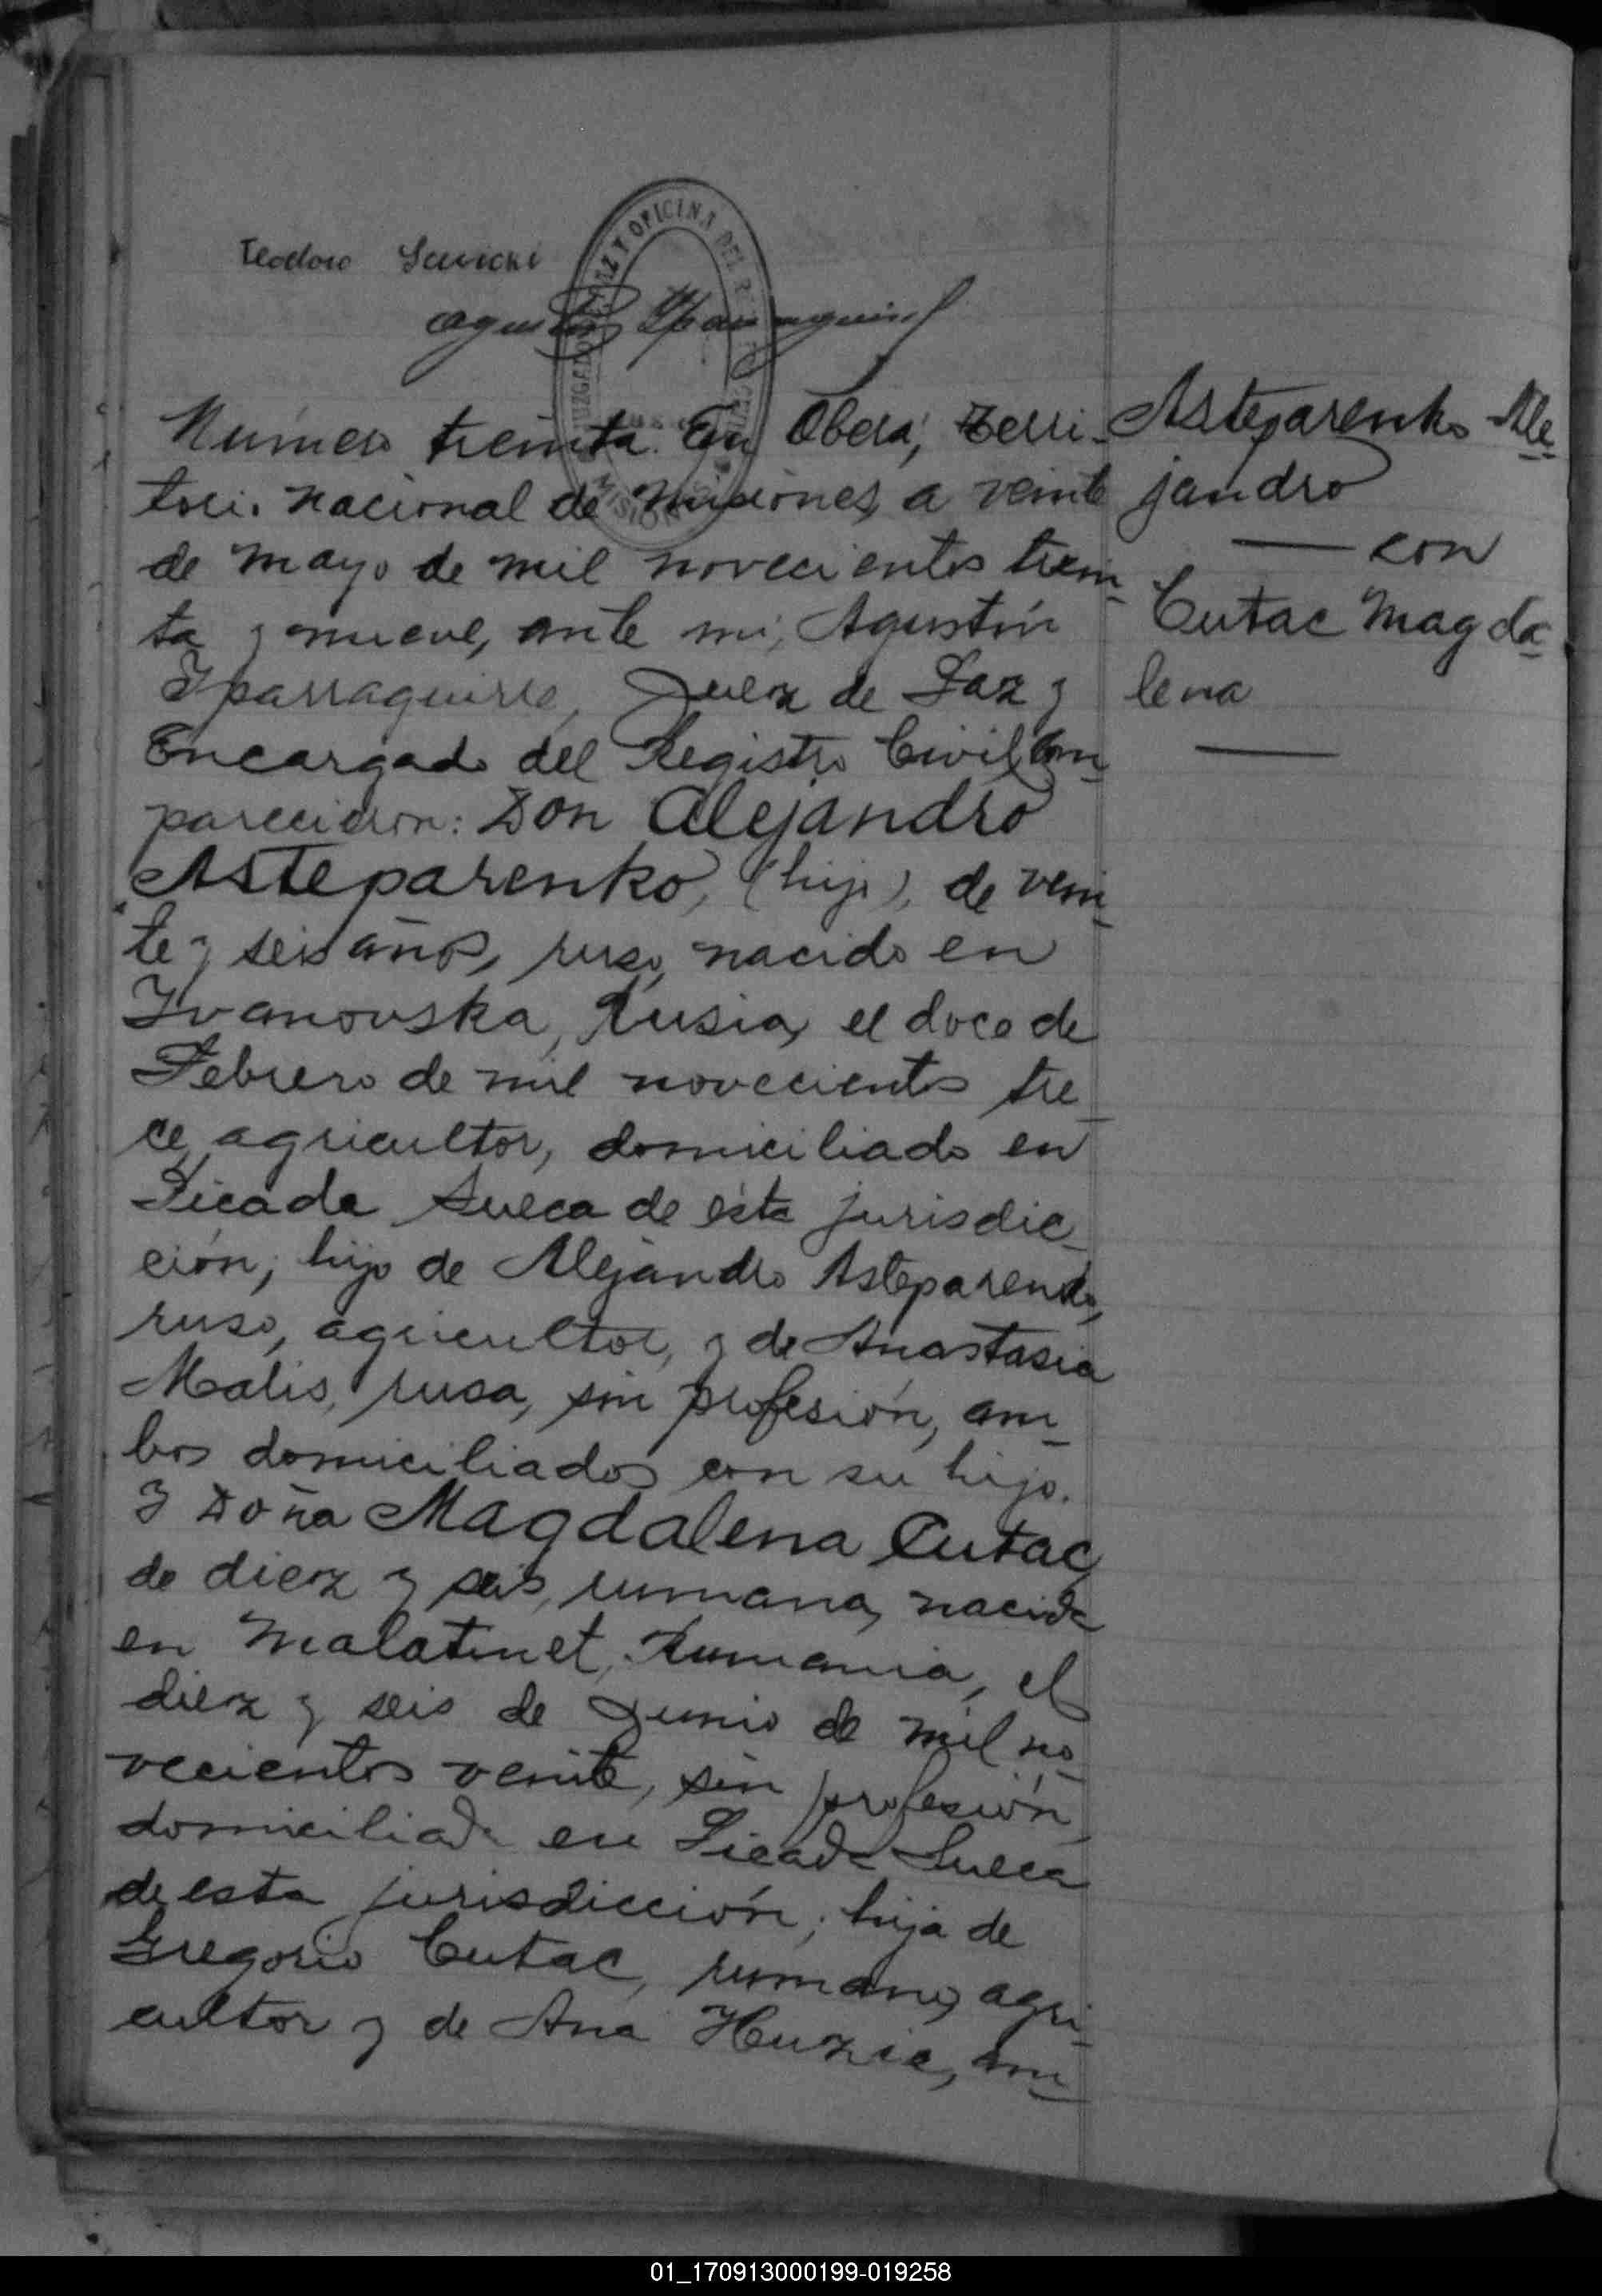 Teodoro Sawicki
Agustín Iparraguirre
JUZGADO DE PAZ Y OFICINA DEL REGISTRO CIVIL
MISIONES
Número treinta. En Oberá, Terri-
torio nacional de Misiones, a veinte
de Mayo de mil novecientos trein-
ta y nueve, ante mi, Agustín
Iparraguirre, Juez de Paz y
Encargado del Registro Civil, Com-
parecieron: Don Alejandro
Asteparenko, (hijo), de vein-
te y seis años, ruso, nacido en
Ivanovska, Rusia, el doce de
Febrero de mil novecientos tre-
ce, agricultor, domiciliado en
Picada Sueca de esta jurisdic-
ción; hijo de Alejandro Asteparenko,
ruso, agricultor, y de Anastasia
Malis, rusa, sin profesión, am-
bos domiciliados con su hijo.
Y Doña Magdalena Cutac,
de diez y seis, rumana, nacida
en Malatinet, Rumania, el
diez y seis de Junio de mil no-
vecientos veinte, sin profesión,
domiciliada en Picada Sueca
de esta jurisdicción; hija de
Gregorio Cutac, rumano, agri-
cultor y de Ana Huzic, am-
Asteparenko Ale-
jandro
— con
Cutac Magda-
lena
01_170913000199-019258